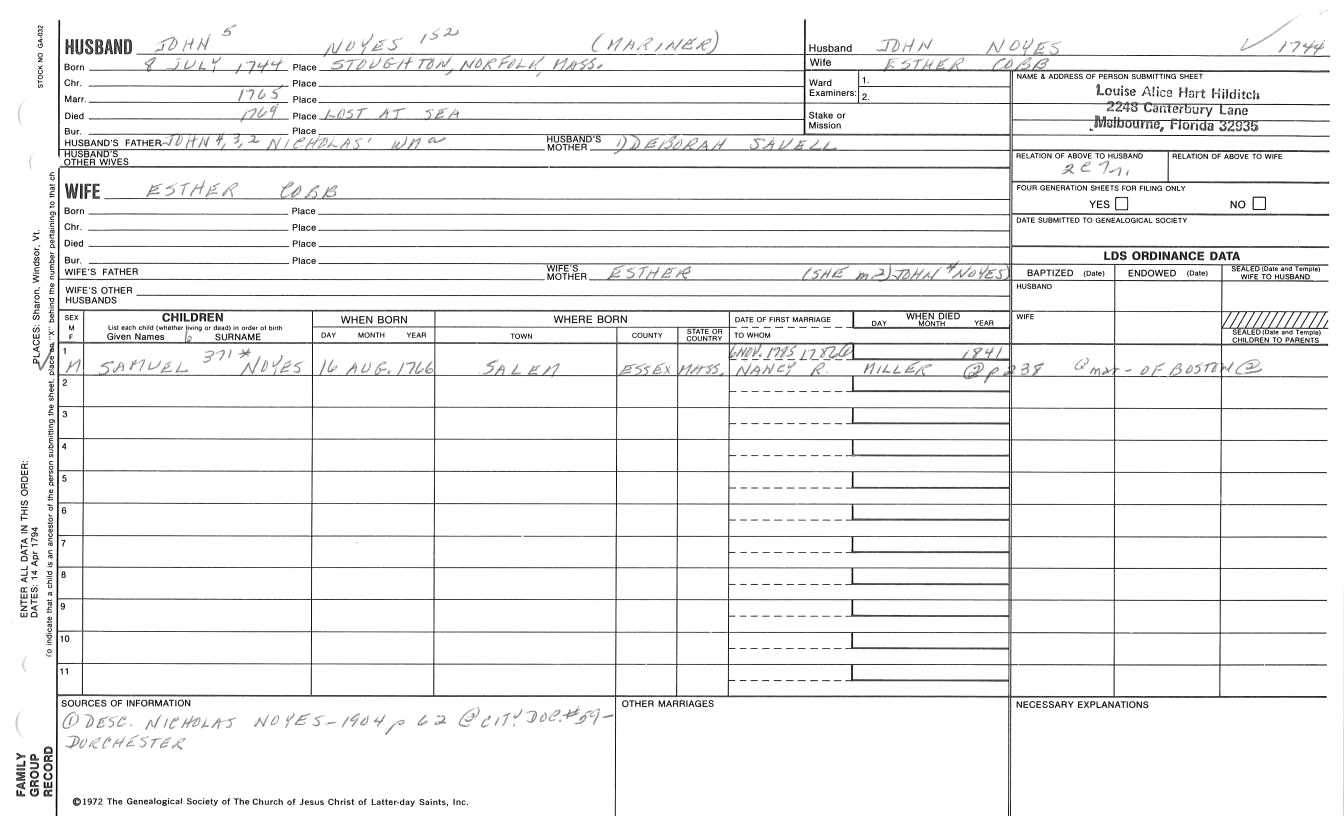 STOCK NO GA-032
HUSBAND JOHN 5 NOYES 152 (MARINER)
Born 8 JULY 1744 Place STOUGHTON, NORFOLK, MASS.
Chr. Place
Marr. 1765 Place
Died 1769 Place LOST AT SEA
Bur. Place
HUSBAND'S FATHER JOHN 4, 3, 2 NICHOLAS' Wm HUSBAND'S MOTHER 1) DEBORAH SAVELL
HUSBAND'S OTHER WIVES
Husband JOHN NOYES ✓ 1744
Wife ESTHER COBB
Ward Examiners: 1.
2.
Stake or Mission
NAME & ADDRESS OF PERSON SUBMITTING SHEET
Louise Alice Hart Hilditch
2248 Canterbury Lane
Melbourne, Florida 32935
RELATION OF ABOVE TO HUSBAND RELATION OF ABOVE TO WIFE
FOUR GENERATION SHEETS FOR FILING ONLY
YES NO
DATE SUBMITTED TO GENEALOGICAL SOCIETY
WIFE ESTHER COBB
Born Place
Chr. Place
Died Place
Bur. Place
WIFE'S FATHER WIFE'S MOTHER ESTHER (SHE m 2) JOHN 4 NOYES)
WIFE'S OTHER HUSBANDS
LDS ORDINANCE DATA
BAPTIZED (Date) ENDOWED (Date) SEALED (Date and Temple) WIFE TO HUSBAND
HUSBAND
WIFE
SEALED (Date and Temple) CHILDREN TO PARENTS
SEX M F
CHILDREN
List each child (whether living or dead) in order of birth
Given Names SURNAME
WHEN BORN
DAY MONTH YEAR
WHERE BORN
TOWN COUNTY STATE OR COUNTRY
DATE OF FIRST MARRIAGE
TO WHOM
WHEN DIED
DAY MONTH YEAR
1 371* 6 NOV. 1795 1841
M SAMUEL NOYES 16 AUG. 1766 SALEM ESSEX MASS. NANCY R. MILLER @ p 238 mar - OF BOSTON
2
3
4
5
6
7
8
9
10
11
SOURCES OF INFORMATION
① DESC. NICHOLAS NOYES-1904 p 62 ② CITY. DOC. #59-
DORCHESTER
OTHER MARRIAGES
NECESSARY EXPLANATIONS
©1972 The Genealogical Society of The Church of Jesus Christ of Latter-day Saints, Inc.
FAMILY GROUP RECORD
ENTER ALL DATA IN THIS ORDER:
DATES: 14 Apr 1794
PLACES: Sharon, Windsor, Vt.
To indicate that a child is an ancestor of the person submitting the sheet, place an "X" behind the number pertaining to that ch